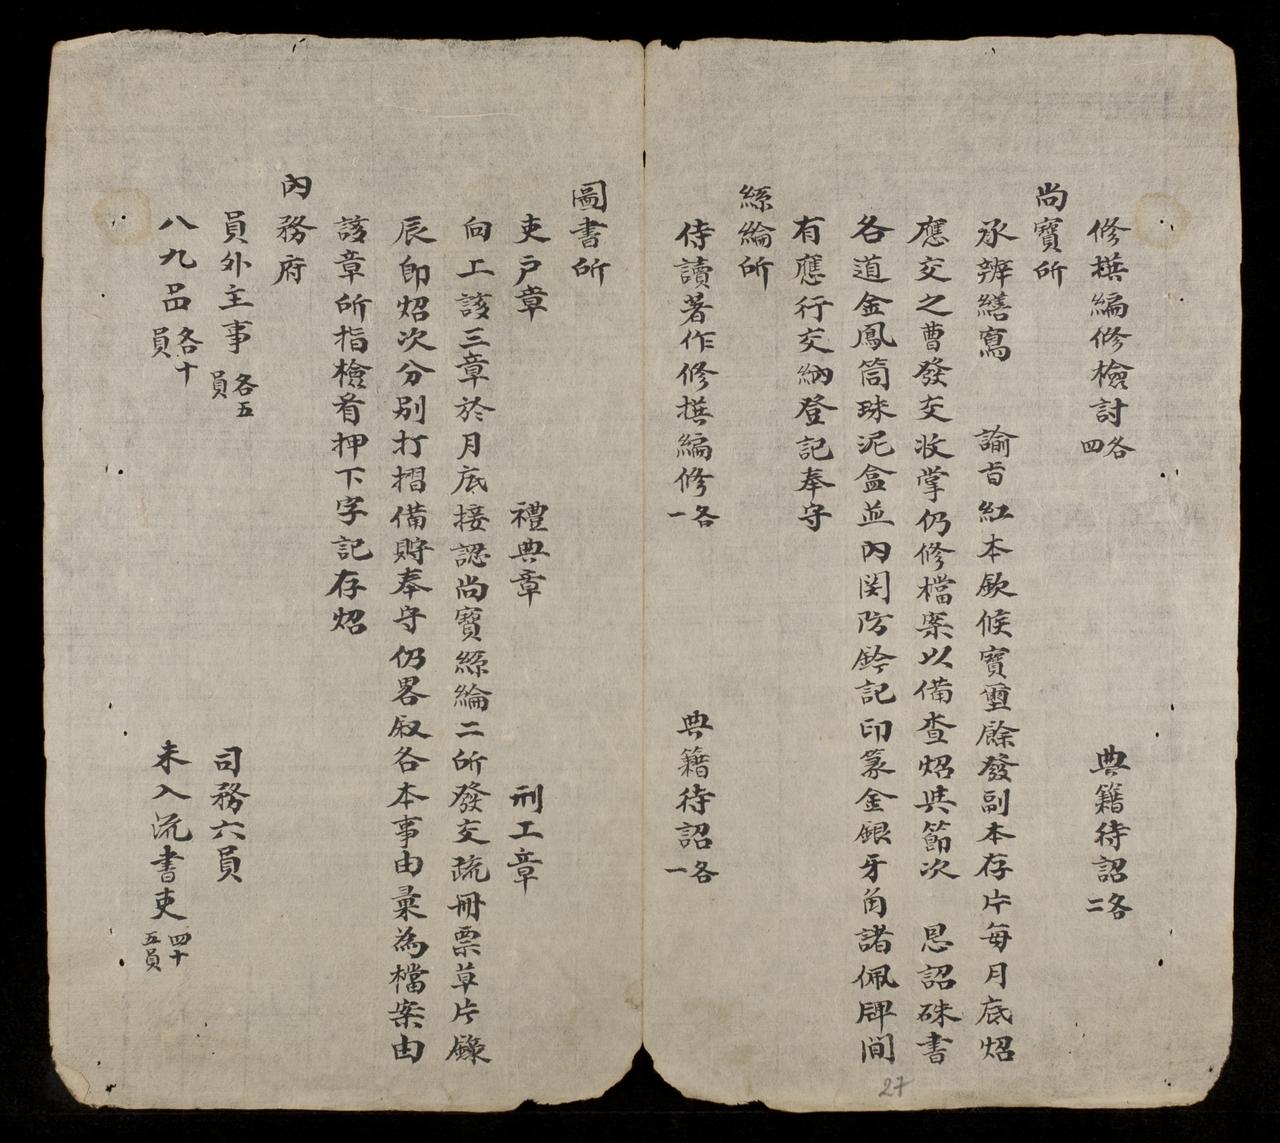 修撰編修檢討各四 典籍待詔各二
尚寶所
承辨繕寫 諭旨紅本欽候寶璽餘發副本存片每月底炤
應交之曹發交收掌仍修檔案以備查炤其節次 恩詔硃書
各道金鳳筒珠泥盒並內関防鈐記印篆金銀牙角諸佩牌間
有應行交納登記奉守
絲綸所
侍讀著作修撰編修各一 典籍待詔各一
圖書所
吏户章 禮典章 刑工章
向上該三章於月底接認尚寶絲綸二所發交疏冊票草片錄
辰卽炤次分別打摺備貯奉守仍畧叙各本事由彙為檔案由
該章所指檢肴押下字記存炤
內務府
員外主事各五員 司務六員
八九品各十員 未入流書吏四十五員
27